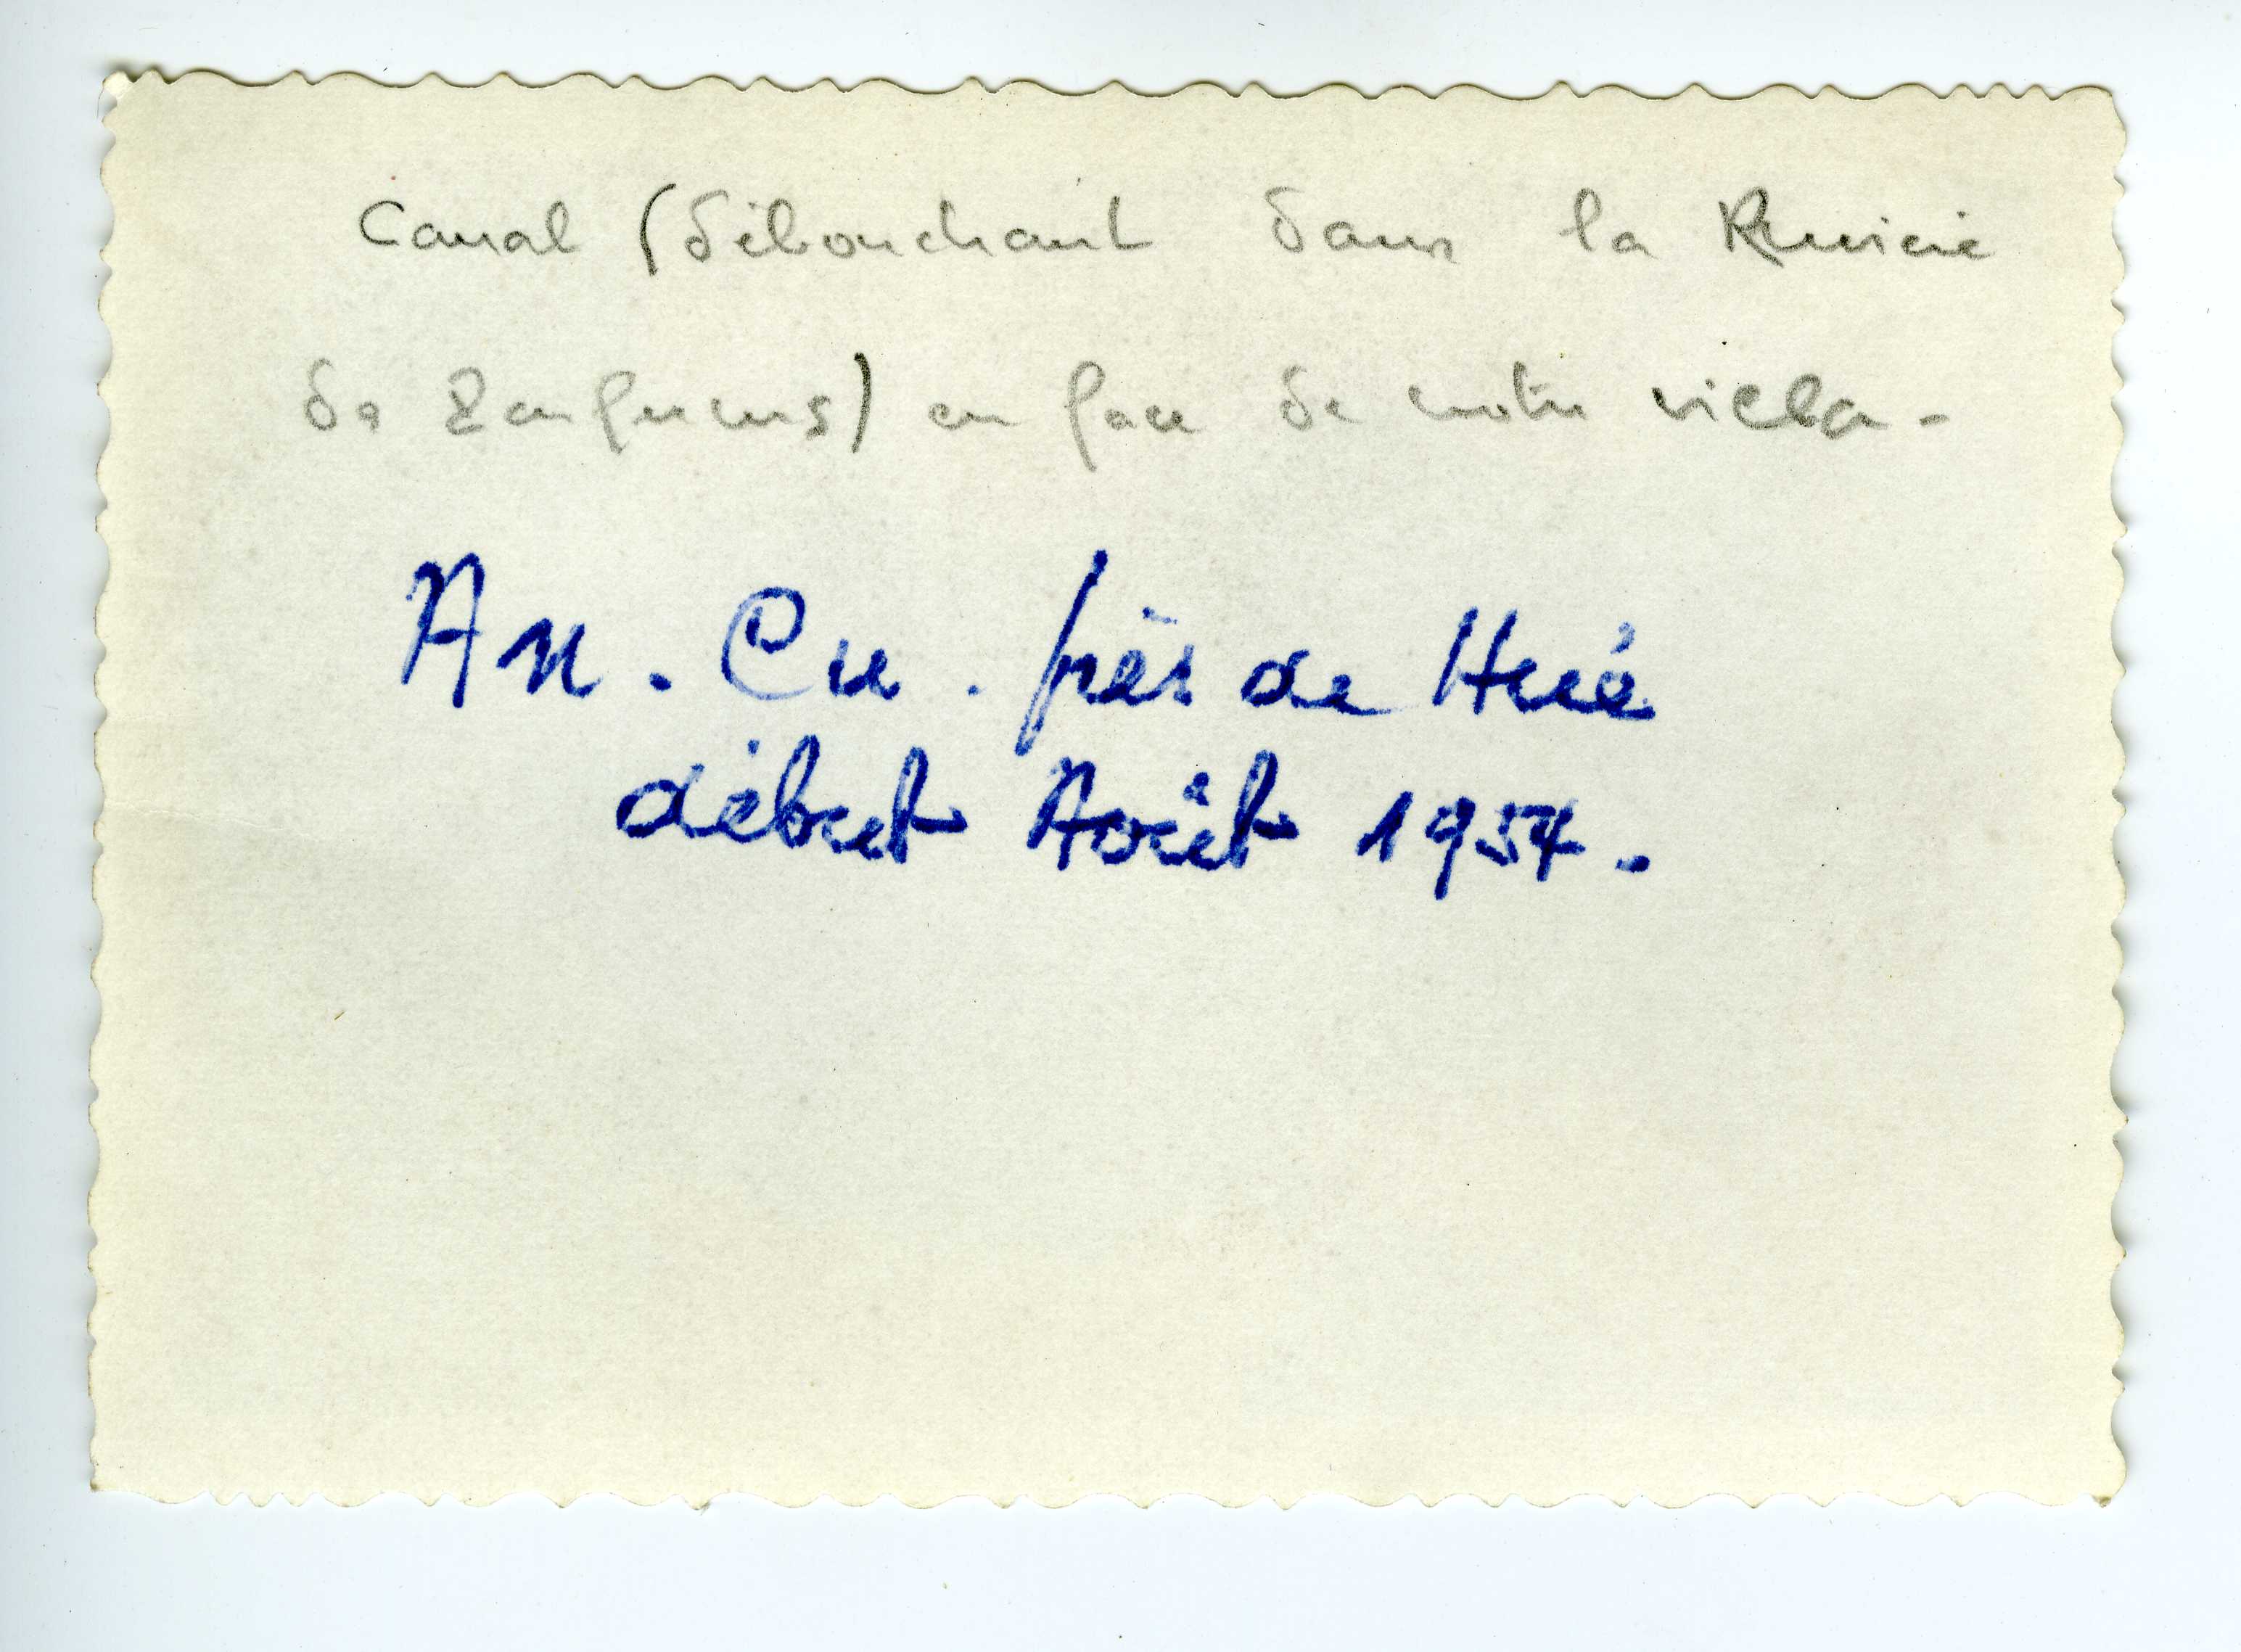 Canal (débouchant dans la Rivière
des Parfums) en face de notre villa -
An. Cu. près de Hué
début Août 1954.